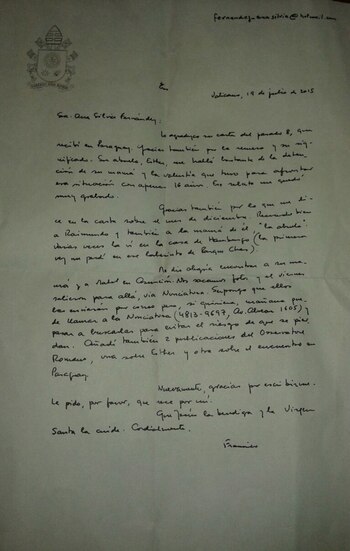 Vaticano, 18 de julio de 2015
Sra. Ana Silvia Fernández:
Le agradezco su carta del pasado 8, que
recibí en Paraguay. Gracias también por la remera y su sig-
nificado. Su abuela, Esther, me habló bastante de la deten-
ción de su mamá y la valentía que tuvo para afrontar
esa situación con apenas 16 años. Su relato me quedó
muy grabado.
Gracias también por lo que me di-
ce en la carta sobre el mes de diciembre. Recuerdo bien
a Raimundo y también a la mamá de él, "la abuela"
Varias veces la vi en la casa de Hamburgo (la primera
vez me perdí en ese laberinto de Parque Chas).
Me dio alegría encontrar a su ma-
má y a Mabel en Asunción. Nos sacamos fotos y el viernes
salieron para allá, vía Nunciatura. Supongo que ellos
las enviarán por correo pero, si quiere, mañana pue-
de llamar a la Nunciatura (4813-9697, Av. Alvear 1605) y
pasar a buscarlas para evitar el riesgo de que se pier-
dan. Añadí también 2 publicaciones del Osservatore
Romano, una sobre Esther y otra sobre el encuentro en
Paraguay.
Nuevamente, gracias por escribirme.
Le pido, por favor, que rece por mí.
Que Jesús la bendiga y la Virgen
Santa la cuide. Cordialmente,
Francisco